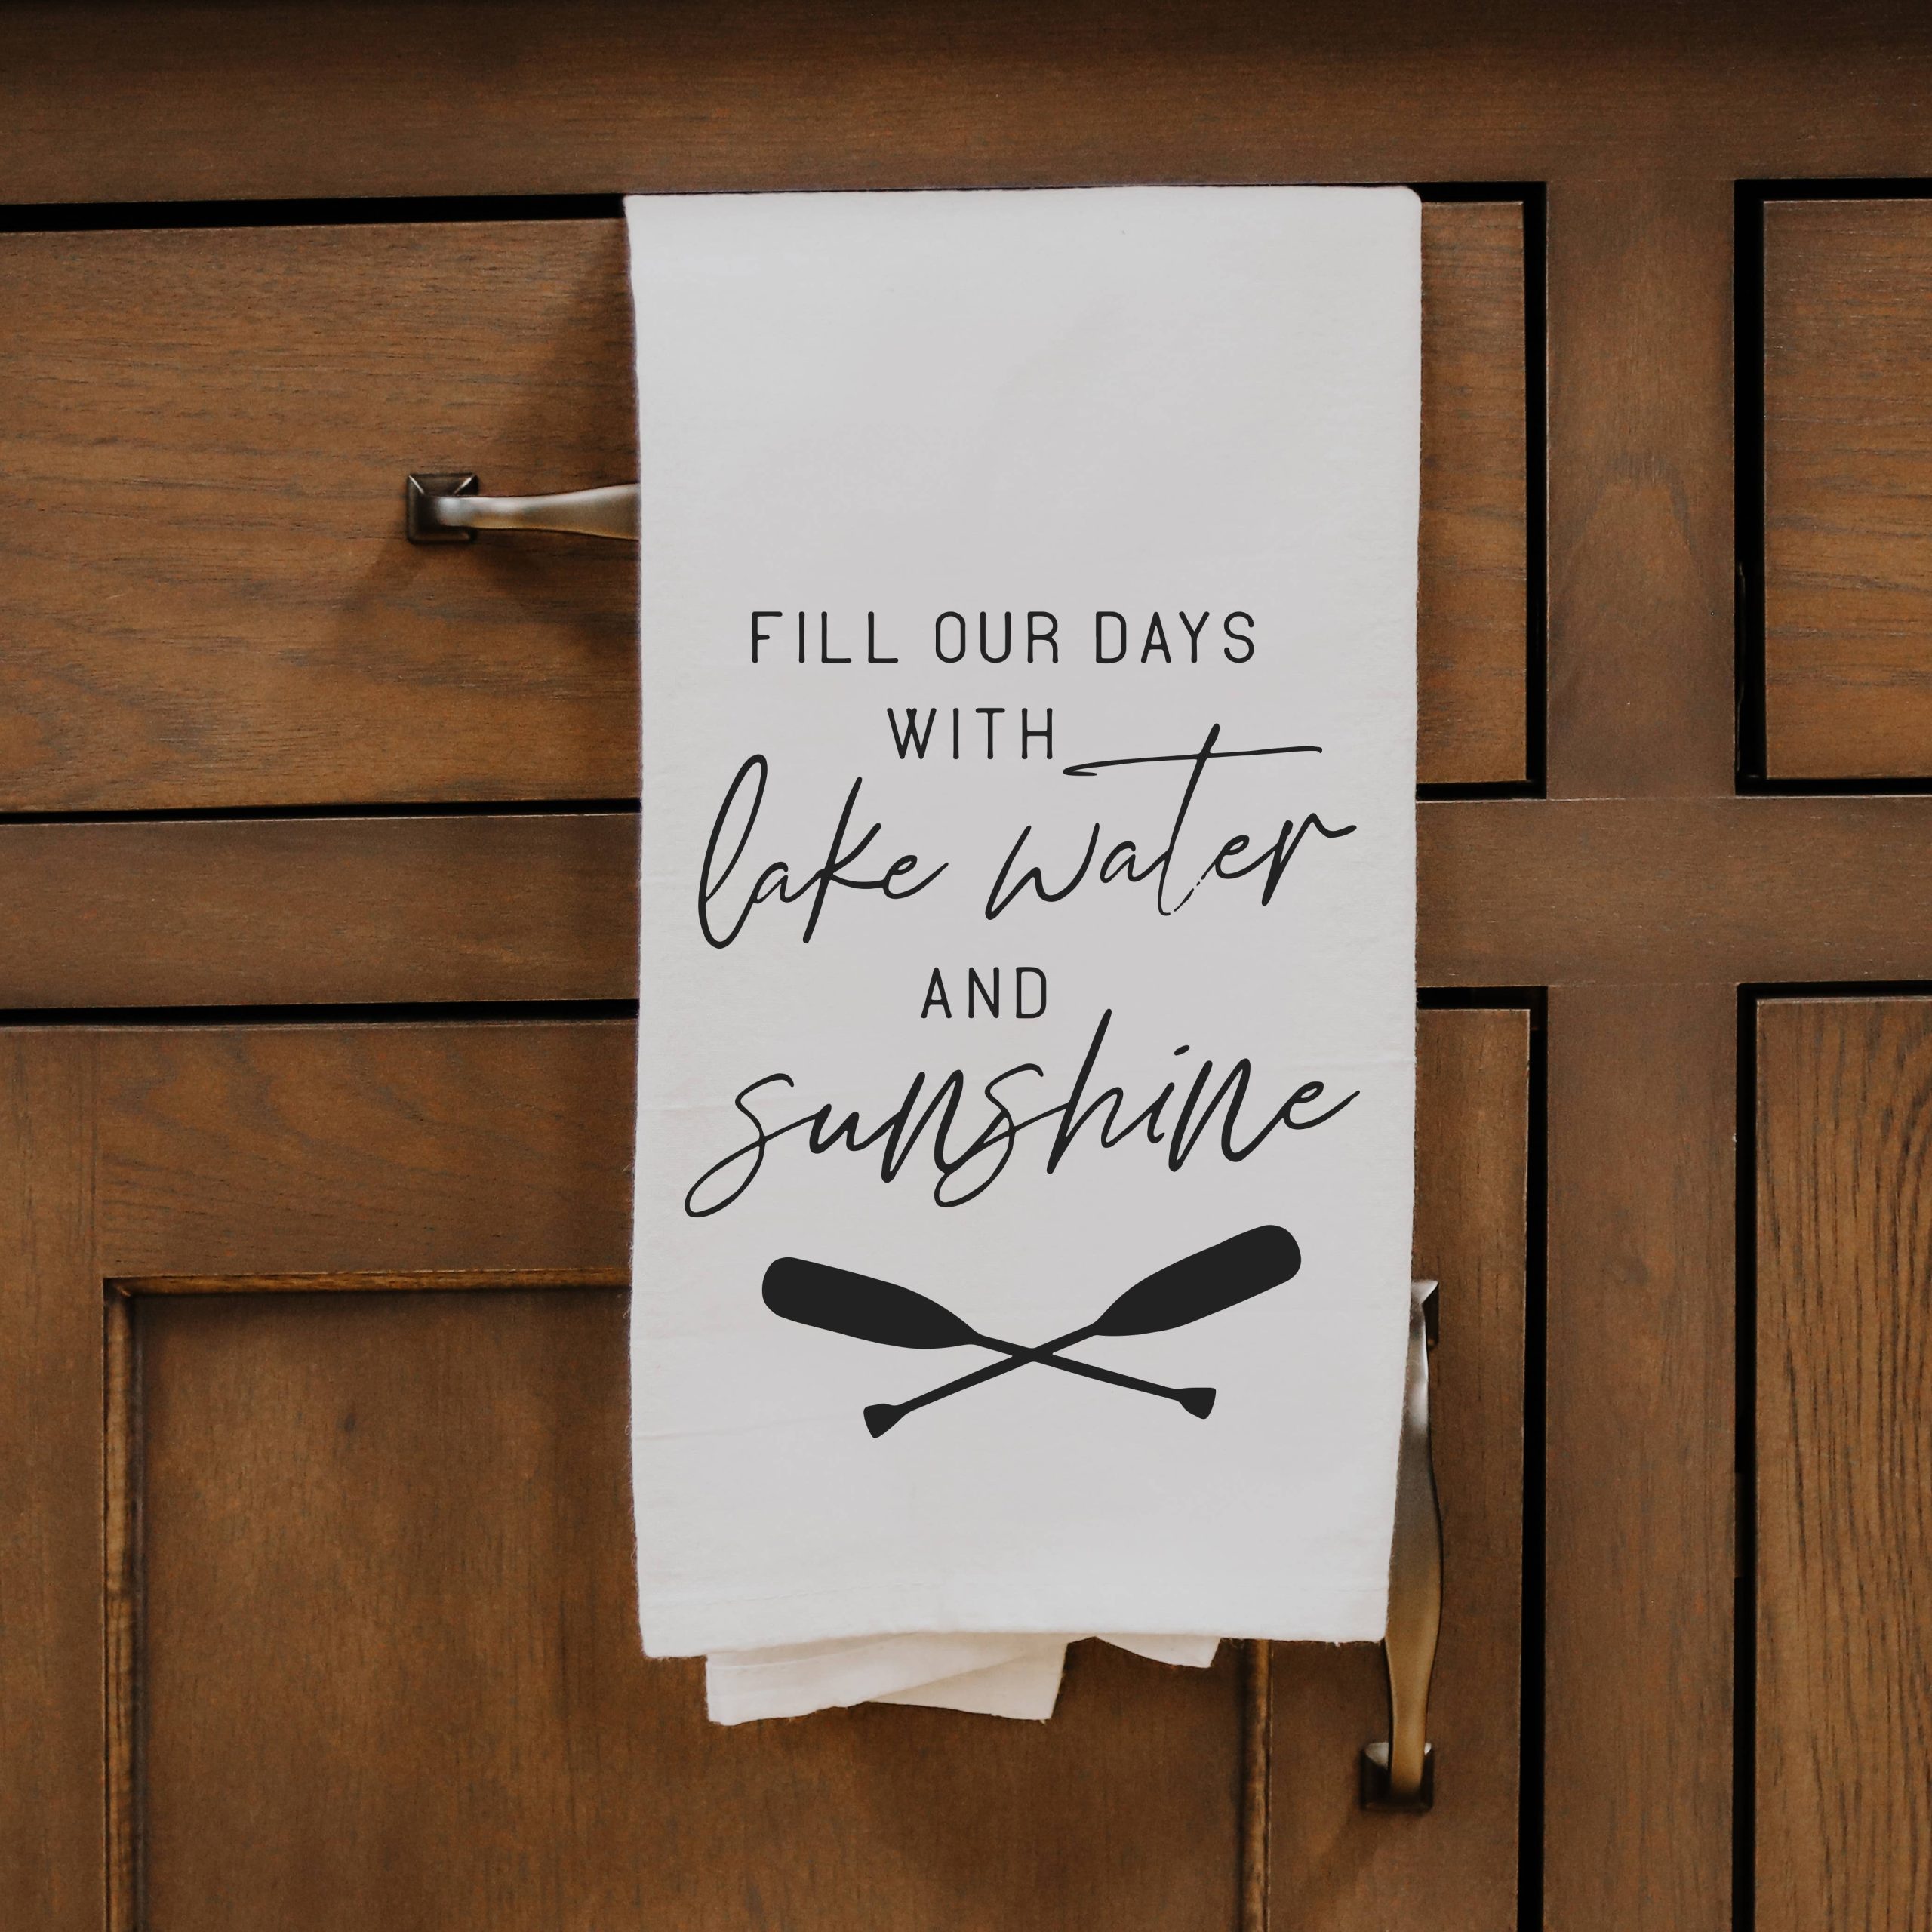 FILL OUR DAYS
WITH
lake water
AND
sunshine